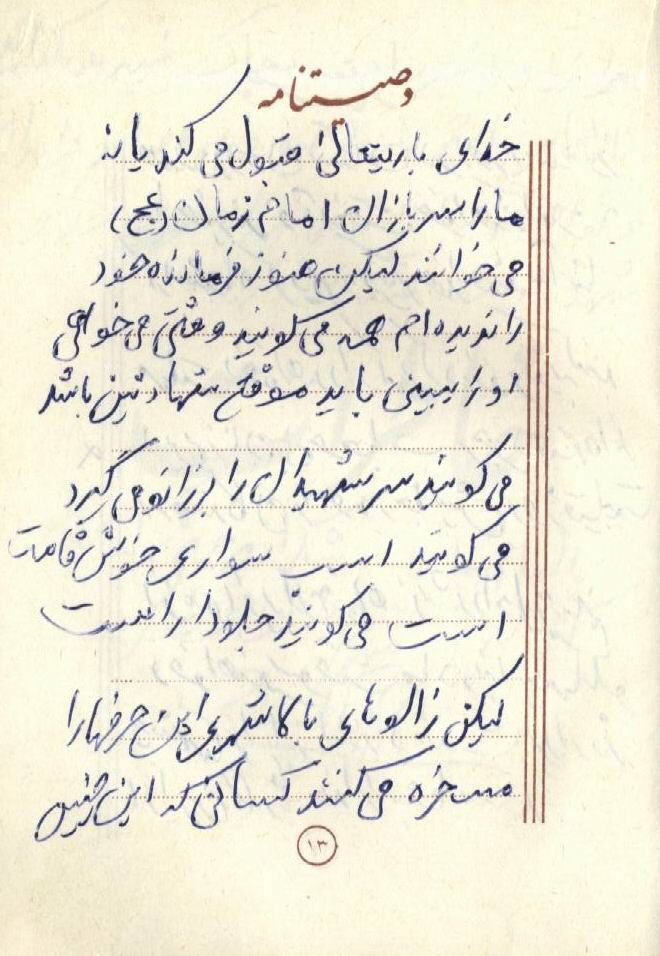 وصیتنامه
خدای باریتعالی قبول می کند یا نه
ما را سرباز ان امام زمان (عج)
می خوانند لیکن هنوز فرمانده خود
را ندیده ام همه می گویند وقتی می خواهی
او را ببینی باید موقع شهادتین باشد
می گویند سر شهیدان را بر زانو می گیرد
می گویند اسب سواری خوش قامت
است می گویند جلودار است
لیکن زالوهای بالا شهری این حرفها را
مسخره می کنند کسانی که این چنین
۱۳